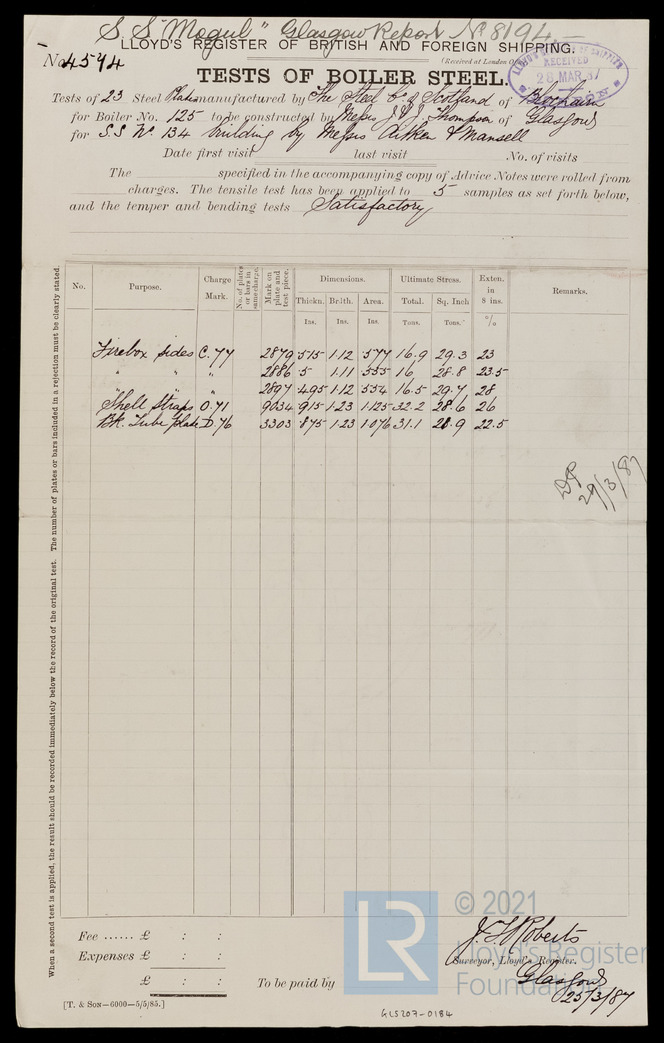 S. S "Mogul" Glasgow Report No. 8194
LLOYD'S REGISTER OF BRITISH AND FOREIGN SHIPPING.
No. 4594
(Received at London Of
RECEIVED
28 MAR. 87
TESTS OF BOILER STEEL.
Tests of 23 Steel Plates manufactured by The Steel Co of Scotland of Blochairn
for Boiler No. 125 to be constructed by Messrs J. & J. Thompson of Glasgow
for S.S No. 134 building by Messrs Aitken & Mansell
Date first visit last visit No. of visits
The specified in the accompanying copy of Advice Notes were rolled from
charges. The tensile test has been applied to 5 samples as set forth below,
and the temper and bending tests Satisfactory
No. Purpose. Charge Mark. No. of plates or bars in same charge. Mark on plate and test piece. Dimensions. Ultimate Stress. Exten. in 8 ins. Remarks.
Thickn. Br'lth. Area. Total. Sq. Inch
Ins. Ins. Ins. Tons. Tons. %
Firebox sides C.77 2879 .515 1.12 .577 16.9 29.3 23
" " " 2886 .5 1.11 .555 16 28.8 23.5
" " 2897 .495 1.12 .554 16.5 29.7 28
Shell Straps O.71 9034 .915 1.23 1.125 32.2 28.6 26
Bk. Tube plate D.76 3303 .875 1.23 1.076 31.1 28.9 22.5
29/3/87
When a second test is applied, the result should be recorded immediately below the record of the original test. The number of plates or bars included in a rejection must be clearly stated.
Fee ...... £ : :
Expenses £ : :
£ : : To be paid by
[T. & SON—6000—5/5/85.]
Surveyor, Lloyd's Register.
Glasgow
25/3/87
LR
© 2021
Lloyd's Register
Foundation
GLS207-0184